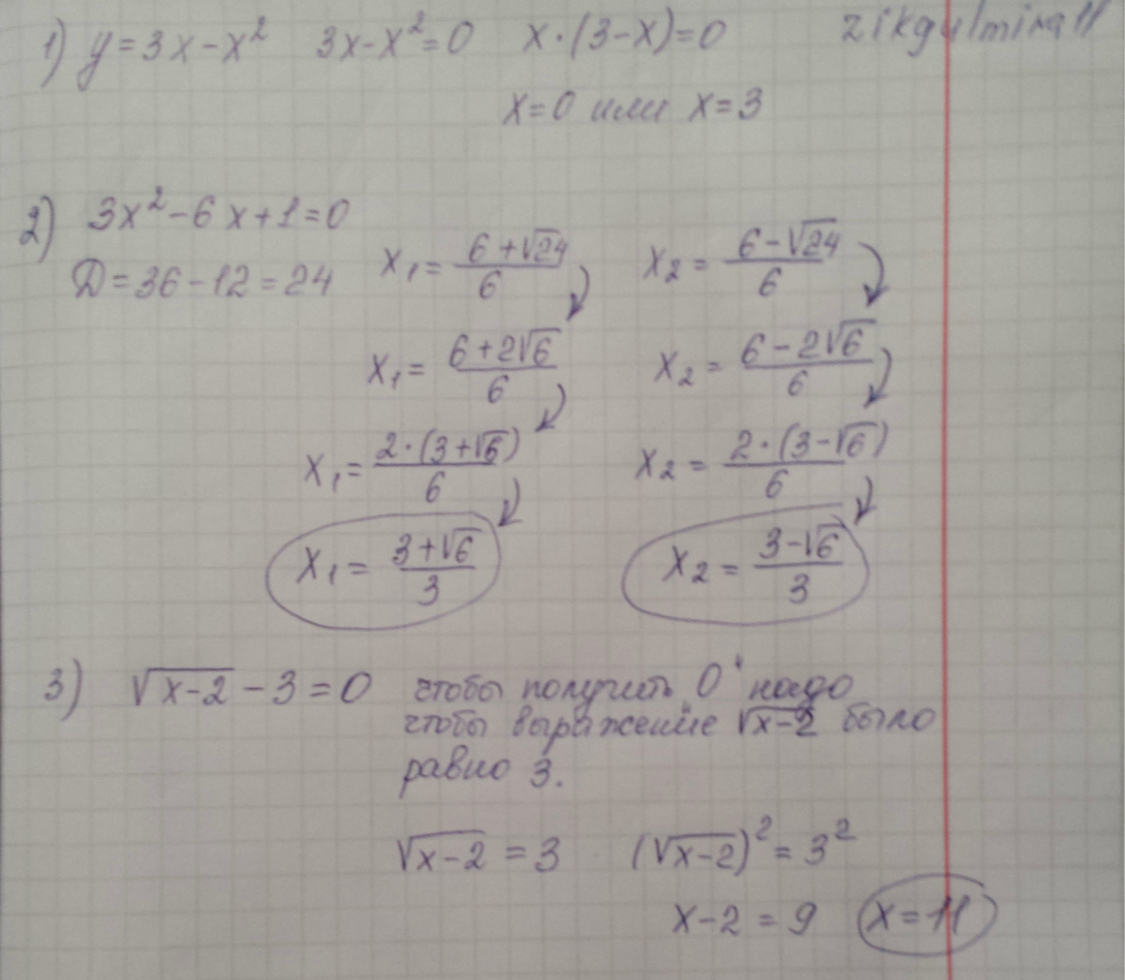 1) y=3x-x² 3x-x²=0 x·(3-x)=0 zikgulmira11
x=0 или x=3
2) 3x²-6x+1=0
D=36-12=24 x₁=(6+√24)/6 x₂=(6-√24)/6
x₁=(6+2√6)/6 x₂=(6-2√6)/6
x₁=(2·(3+√6))/6 x₂=(2·(3-√6))/6
x₁=(3+√6)/3 x₂=(3-√6)/3
3) √(x-2)-3=0 чтобы получить "0" надо
чтобы выражение √(x-2) было
равно 3.
√(x-2)=3 (√(x-2))²=3²
x-2=9 x=11